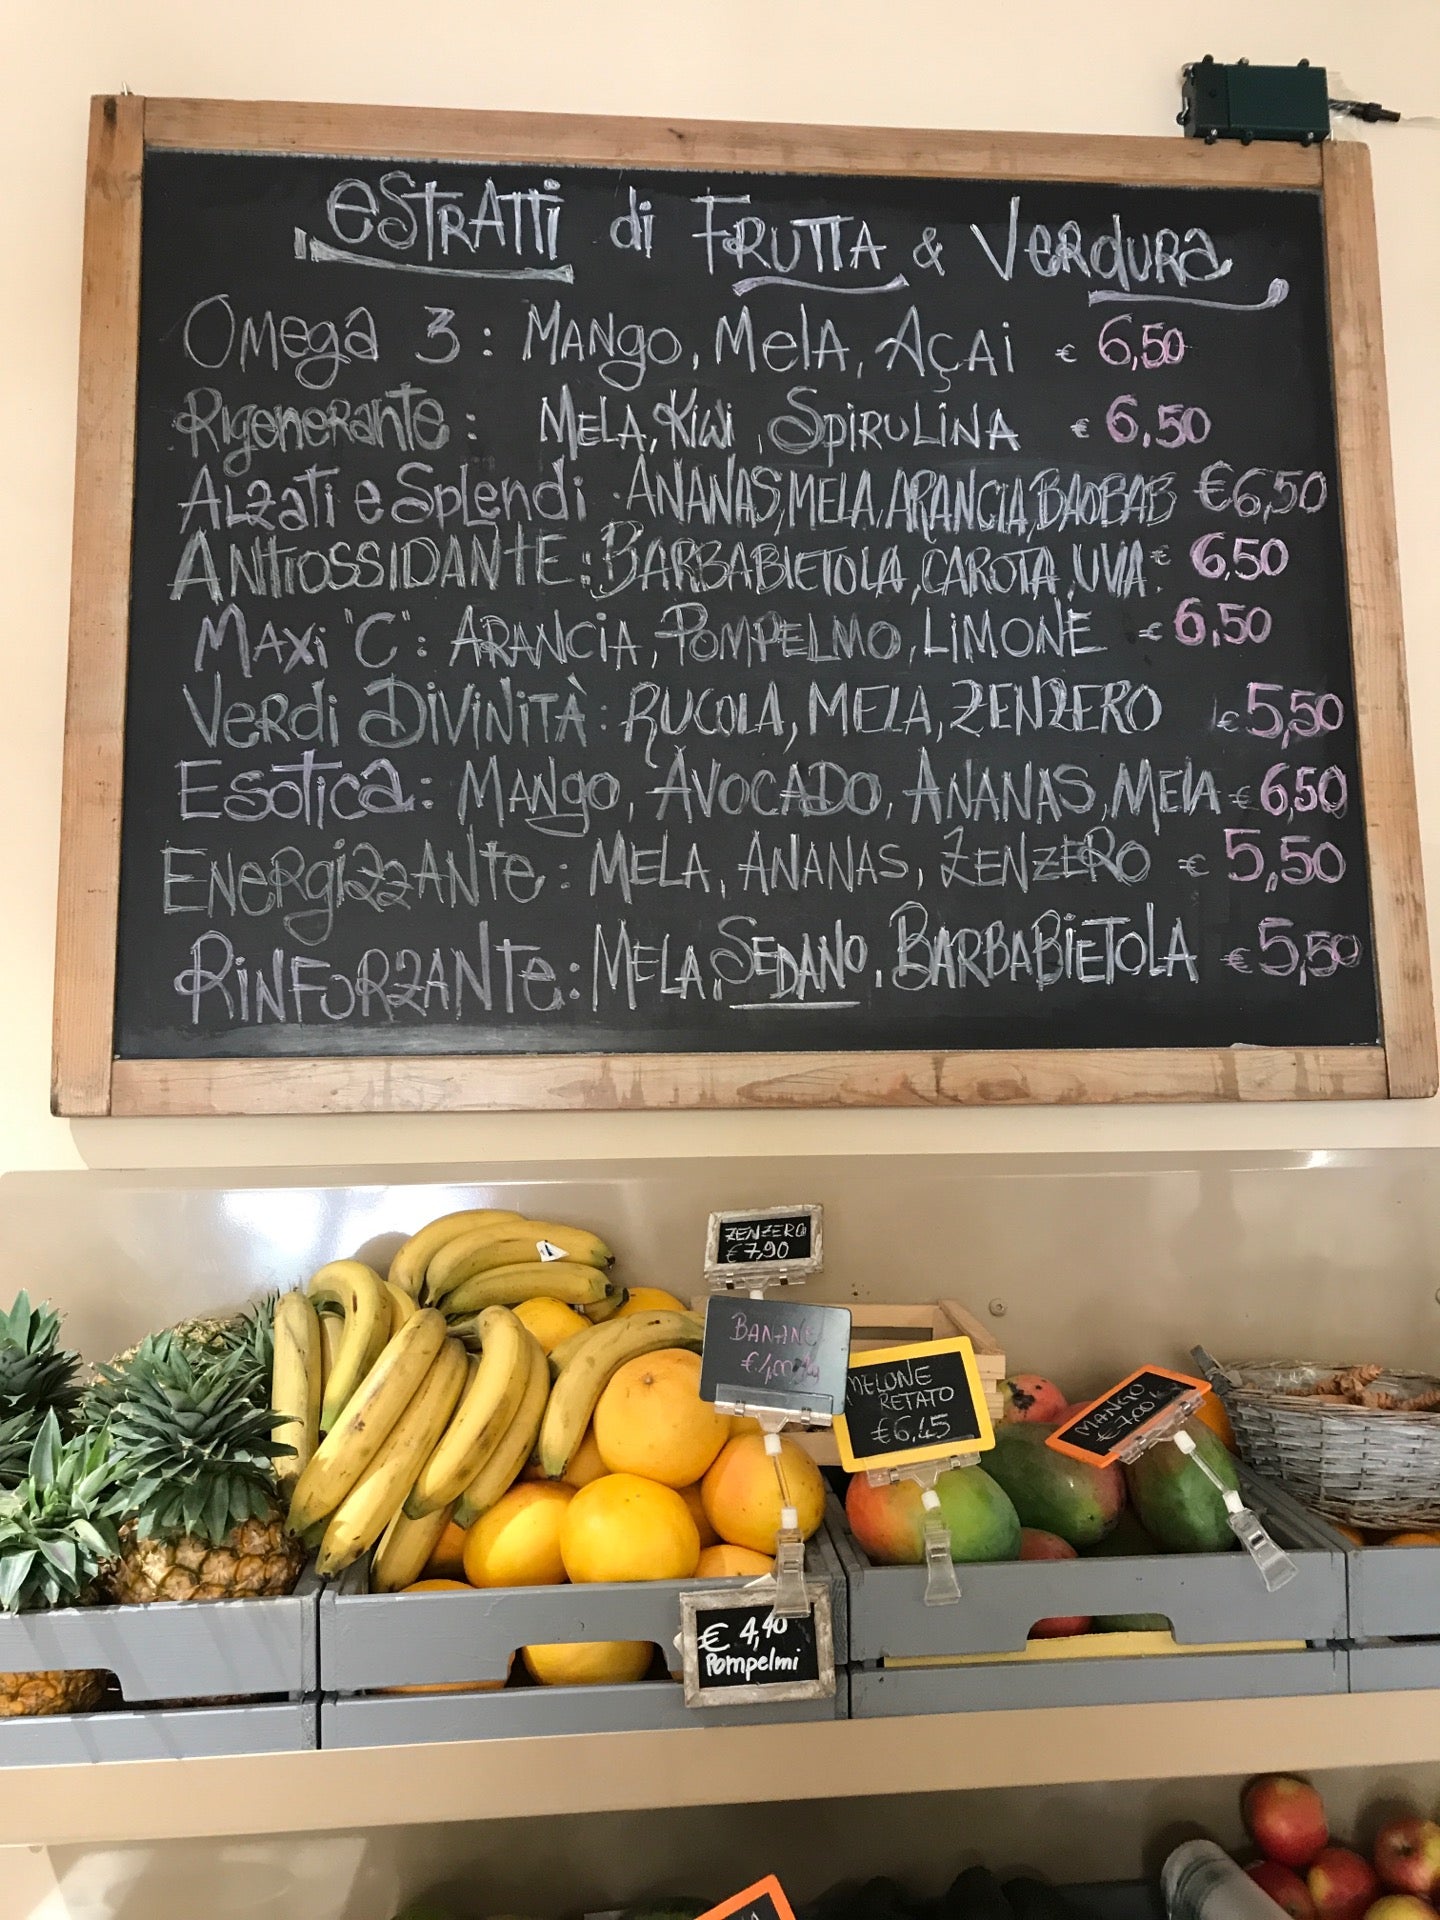 eSTRATTi di FRUTTA & VerduRA
Omega 3 : MANgo, MelA, AÇAi € 6,50
RigeneRante : MELA, Kiwi, SPiRULiNA € 6,50
ALzati e SpLendi : ANANAS, MELA, ARANCIA, BAOBAB €6,50
ANTiOSSIDANTE : BARBABIETOLA, CAROTA, UVA € 6,50
MAXi "C" : ARANCiA, POMPELMO, LiMONE € 6,50
VeRdi DiViNiTÀ : RUCOLA, MELA, ZENZERO € 5,50
Esotica : MANgo, AVOCADO, ANANAS, MElA € 6,50
ENeRgizzANte : MELA, ANANAS, ZENZERO € 5,50
RiNFORzANTe : MELA, SEDANO, BARBABiETOLA € 5,50
ZENZERO
€ 7,90
BANANE
MELONE
RETATO
€6,45
MANGO
€7,00
€ 4,40
Pompelmi